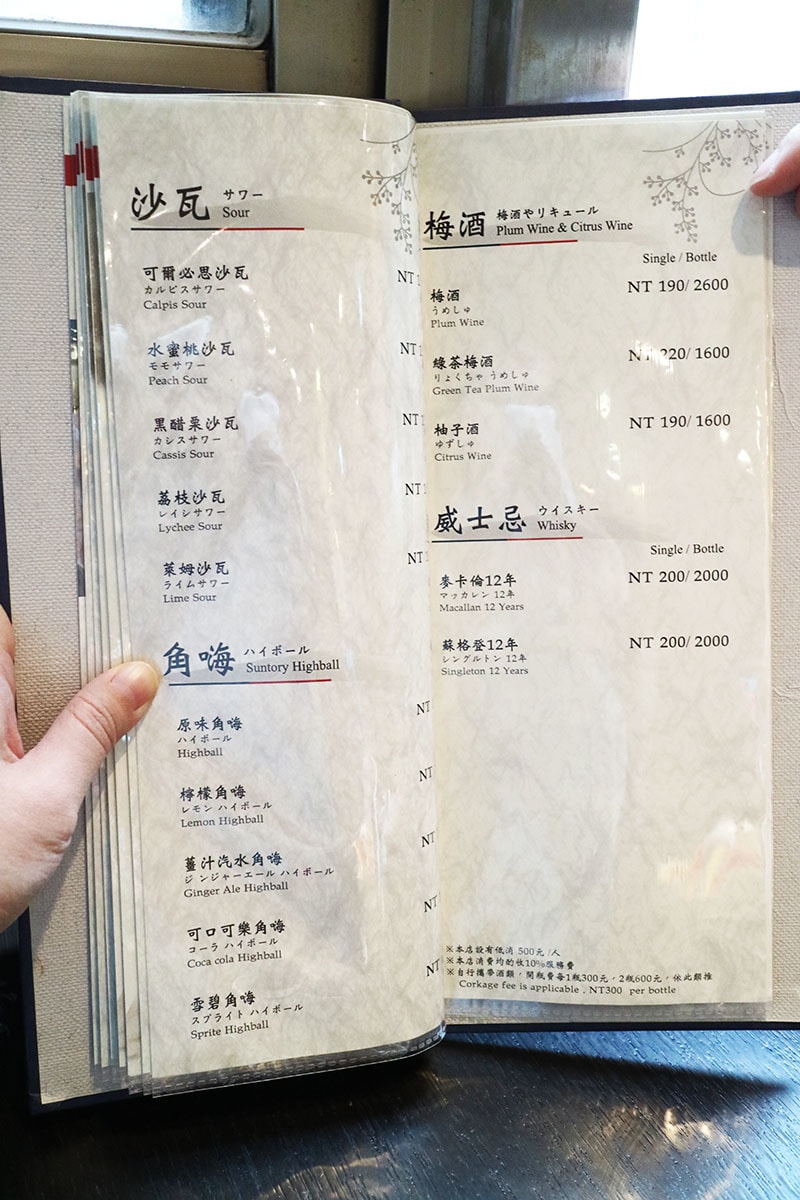 沙瓦 サワー
Sour
可爾必思沙瓦 NT
カルピスサワー
Calpis Sour
水蜜桃沙瓦 NT
モモサワー
Peach Sour
黑醋栗沙瓦 NT
カシスサワー
Cassis Sour
荔枝沙瓦 NT
レイシサワー
Lychee Sour
萊姆沙瓦 NT
ライムサワー
Lime Sour
角嗨 ハイボール
Suntory Highball
原味角嗨 NT
ハイボール
Highball
檸檬角嗨 NT
レモン ハイボール
Lemon Highball
薑汁汽水角嗨 NT
ジンジャーエール ハイボール
Ginger Ale Highball
可口可樂角嗨 NT
コーラ ハイボール
Coca cola Highball
雪碧角嗨 NT
スプライト ハイボール
Sprite Highball
梅酒 梅酒やリキュール
Plum Wine & Citrus Wine
Single / Bottle
梅酒 NT 190/ 2600
うめしゅ
Plum Wine
綠茶梅酒 NT 220/ 1600
りょくちゃ うめしゅ
Green Tea Plum Wine
柚子酒 NT 190/ 1600
ゆずしゅ
Citrus Wine
威士忌 ウイスキー
Whisky
Single / Bottle
麥卡倫12年 NT 200/ 2000
マッカレン 12年
Macallan 12 Years
蘇格登12年 NT 200/ 2000
シングルトン 12年
Singleton 12 Years
※本店設有低消 500元 /人
※本店消費均酌收10%服務費
※自行攜帶酒類，開瓶費每1瓶300元，2瓶600元，依此類推
Corkage fee is applicable . NT300 per bottle